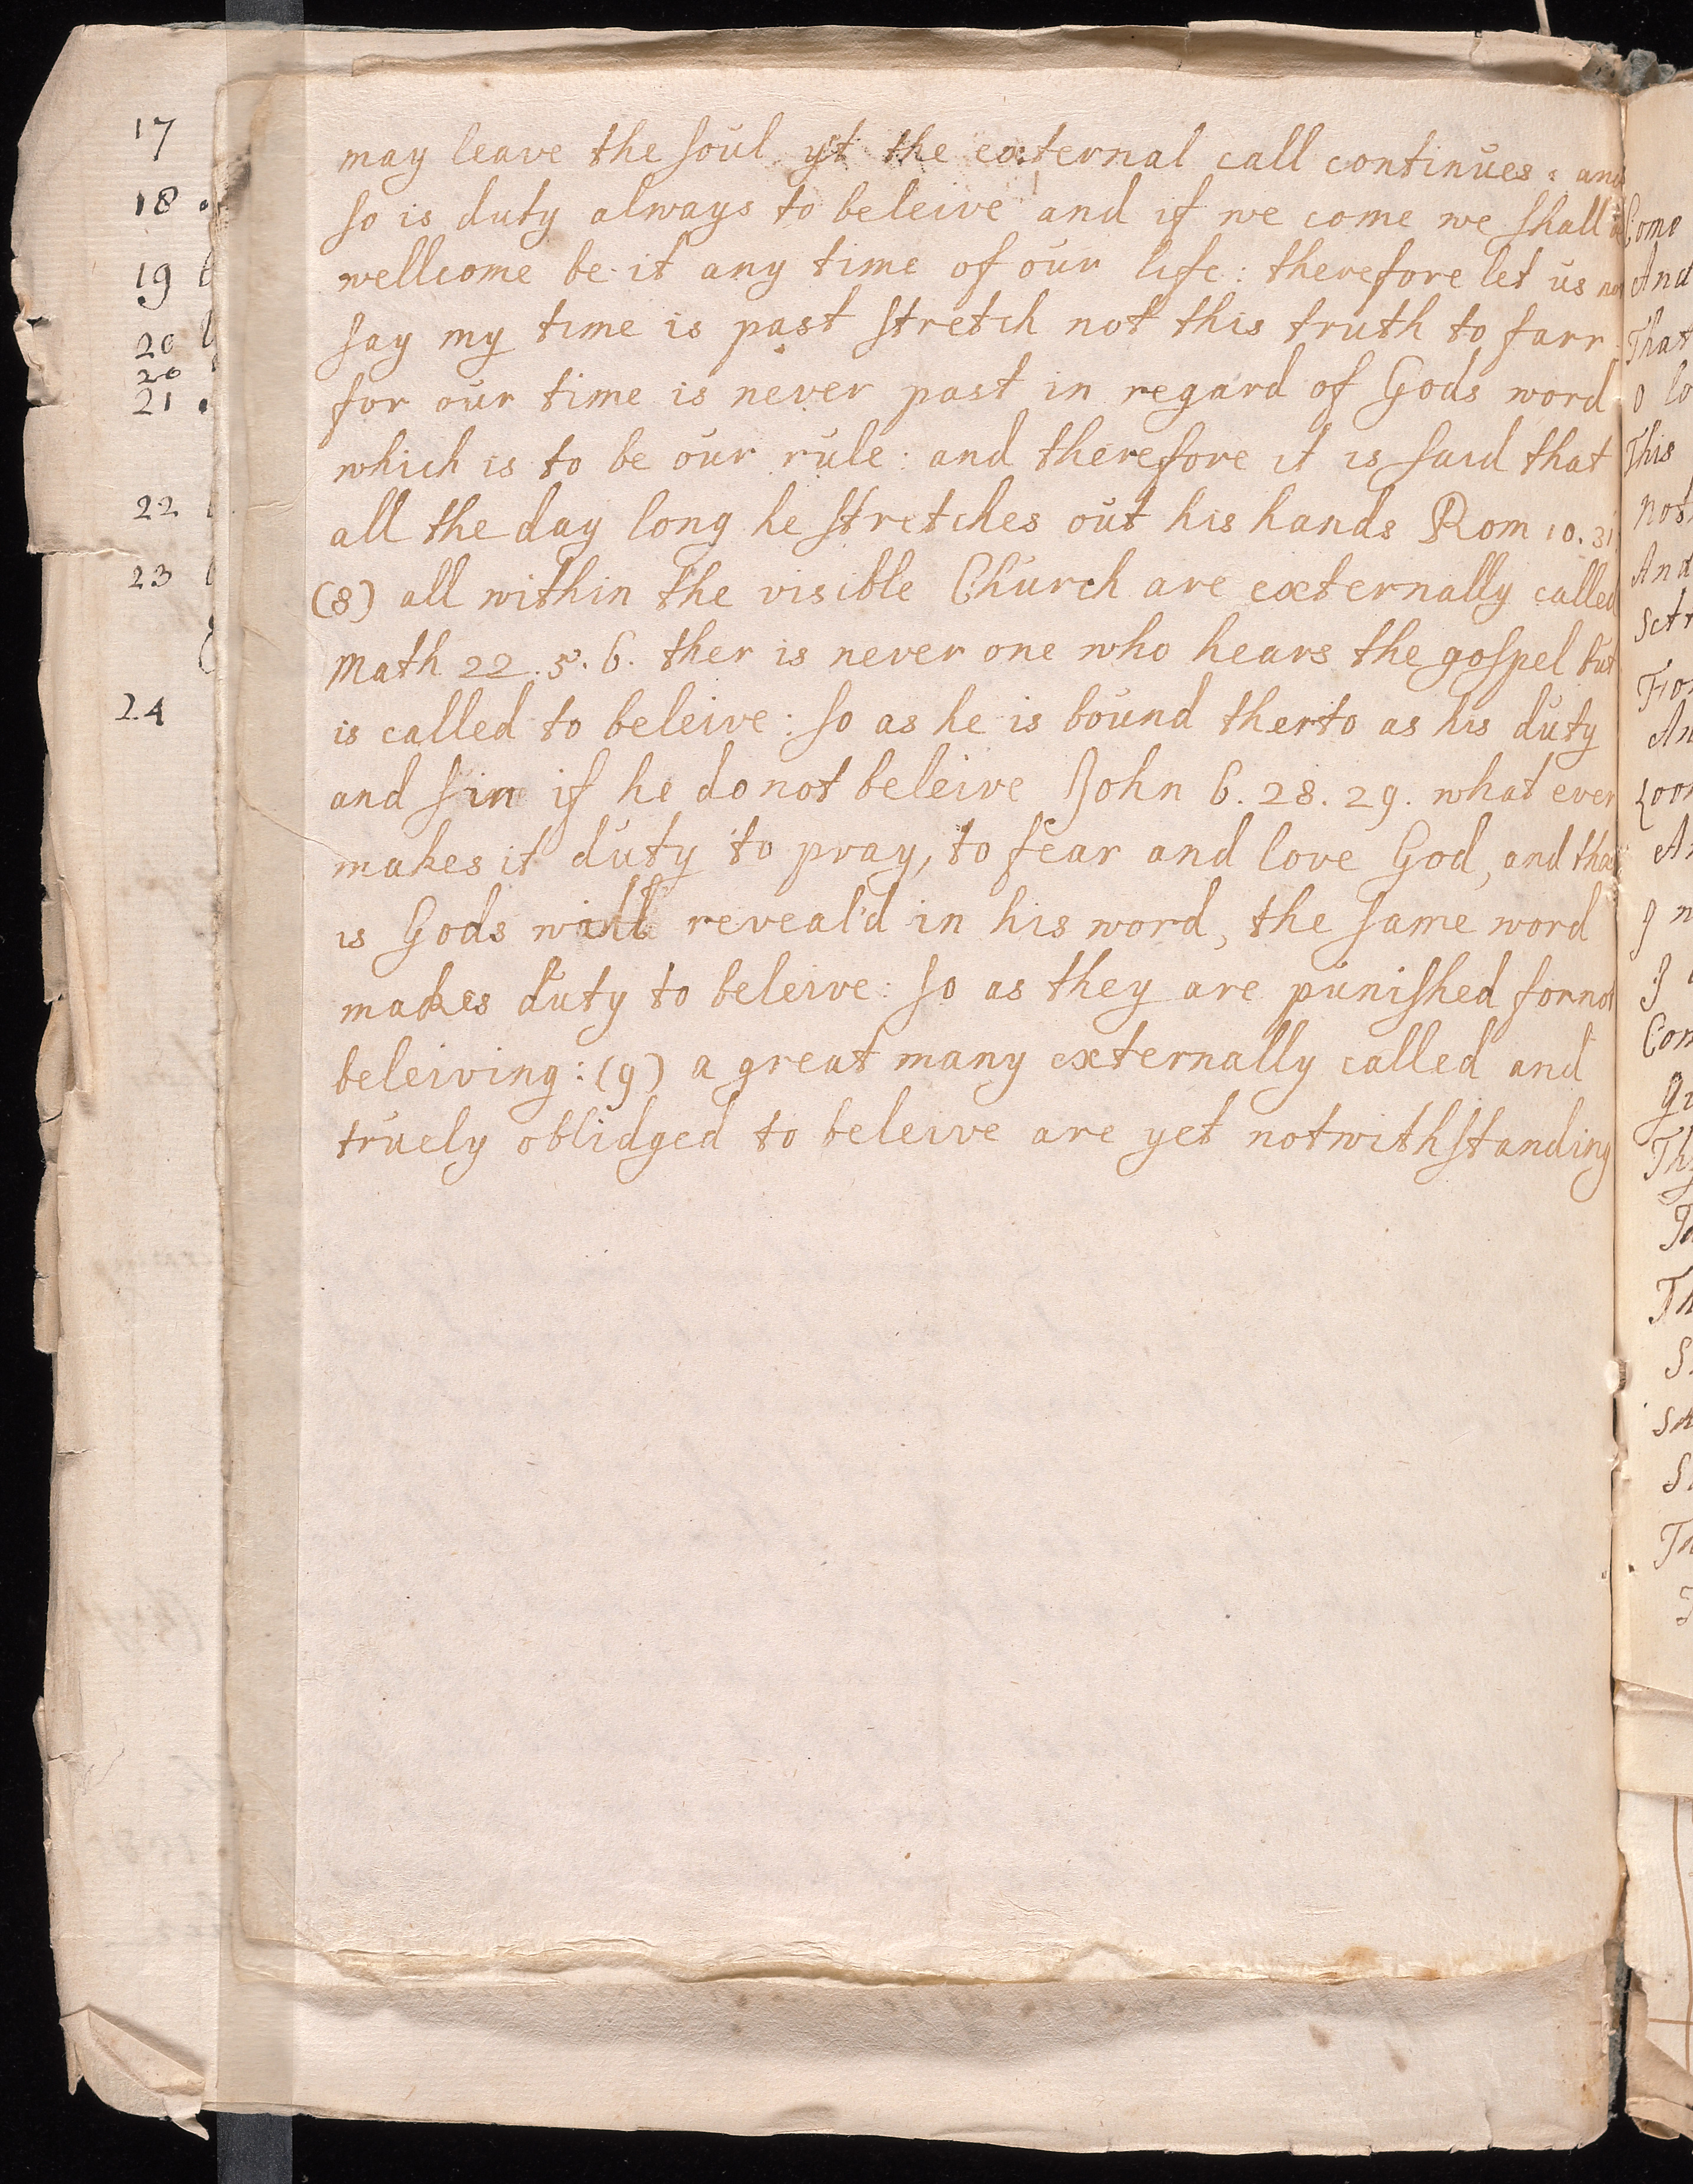 17
18
19
20
20
21
22
23
24
may leave the soul yt the external call continues : and
so is duty always to beleive and if we come we shall be
wellcome be it any time of our life : therefore let us not
say my time is past stretch not this truth to farr
for our time is never past in regard of Gods word
which is to be our rule : and therefore it is said that
all the day long he stretches out his hands Rom 10.31
(8) all within the visible Church are externally called
Math 22.5.6. ther is never one who hears the gospel but
is called to beleive : so as he is bound therto as his duty
and sin if he do not beleive John 6.28.29. what ever
makes it duty to pray, to fear and love God, and that
is Gods will reveal'd in his word, the same word
makes duty to beleive : so as they are punished for not
beleiving : (9) a great many externally called and
truely oblidged to beleive are yet notwithstanding
Come
And
That
This
And